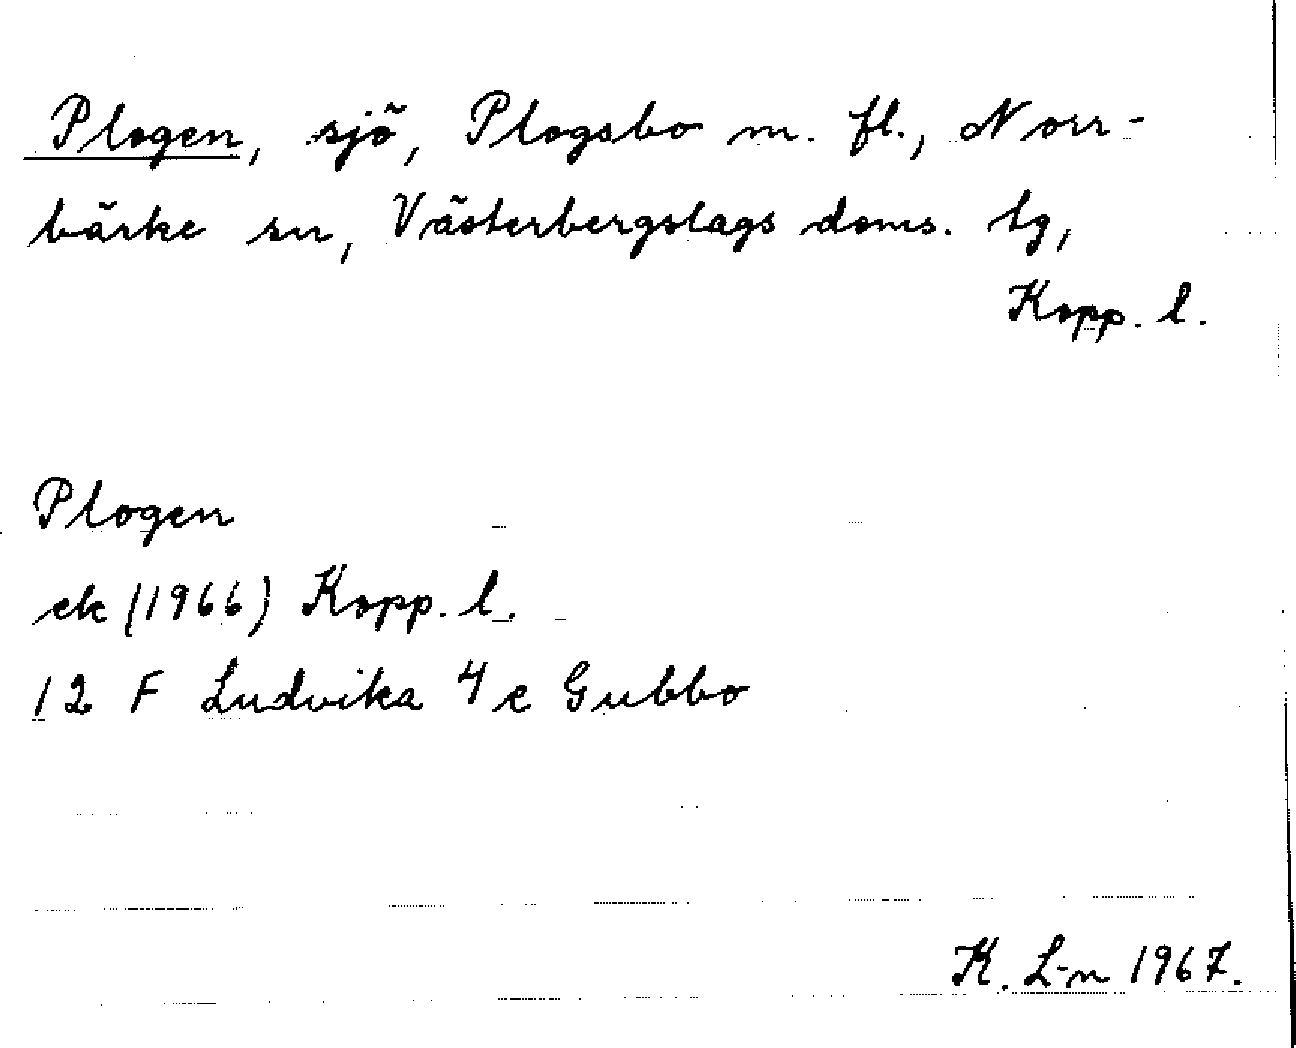 Plogen, sjö, Plogsbo m. fl., Norr-
bärke sn, Västerbergslags doms. tg,
Kopp. l.
Plogen
ek (1966) Kopp. l.
12 F Ludvika 4 c Gubbo
K. L-n 1967.